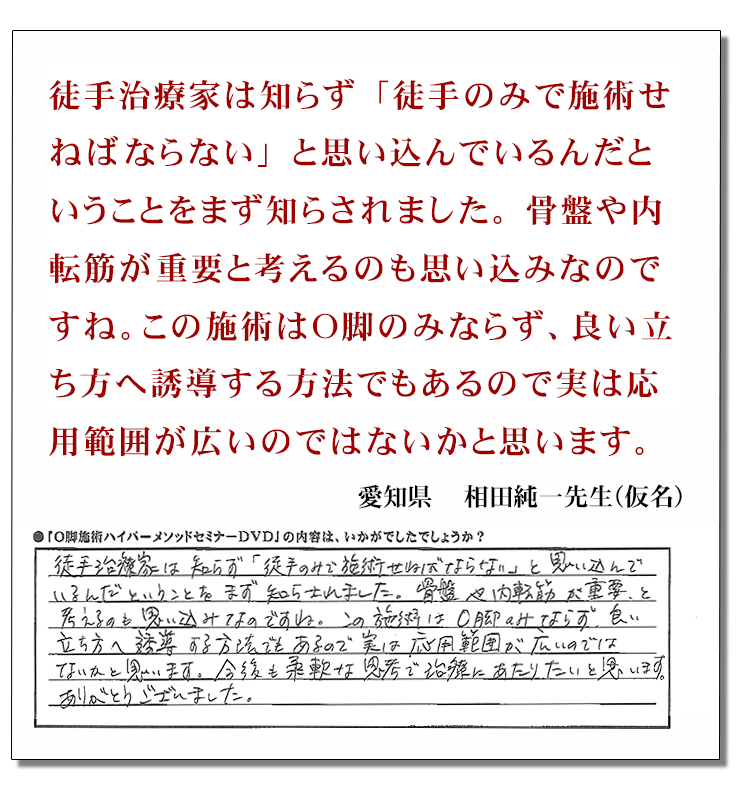 徒手治療家は知らず「徒手のみで施術せ
ねばならない」と思い込んでいるんだと
いうことをまず知らされました。骨盤や内
転筋が重要と考えるのも思い込みなので
すね。この施術はO脚のみならず、良い立
ち方へ誘導する方法でもあるので実は応
用範囲が広いのではないかと思います。
愛知県　相田純一先生(仮名)
●『O脚施術ハイパーメソッドセミナーDVD』の内容は、いかがでしたでしょうか?
徒手治療家は知らず「徒手のみで施術せねばならない」と思い込んで
いるんだということをまず知らせれました。骨盤や内転筋が重要、と
考えるのも思い込みなのですね。この施術はO脚のみならず、良い
立ち方へ誘導する方法でもあるので実は応用範囲が広いのでは
ないかと思います。今後も柔軟な思考で治療にあたりたいと思います。
ありがとうございました。